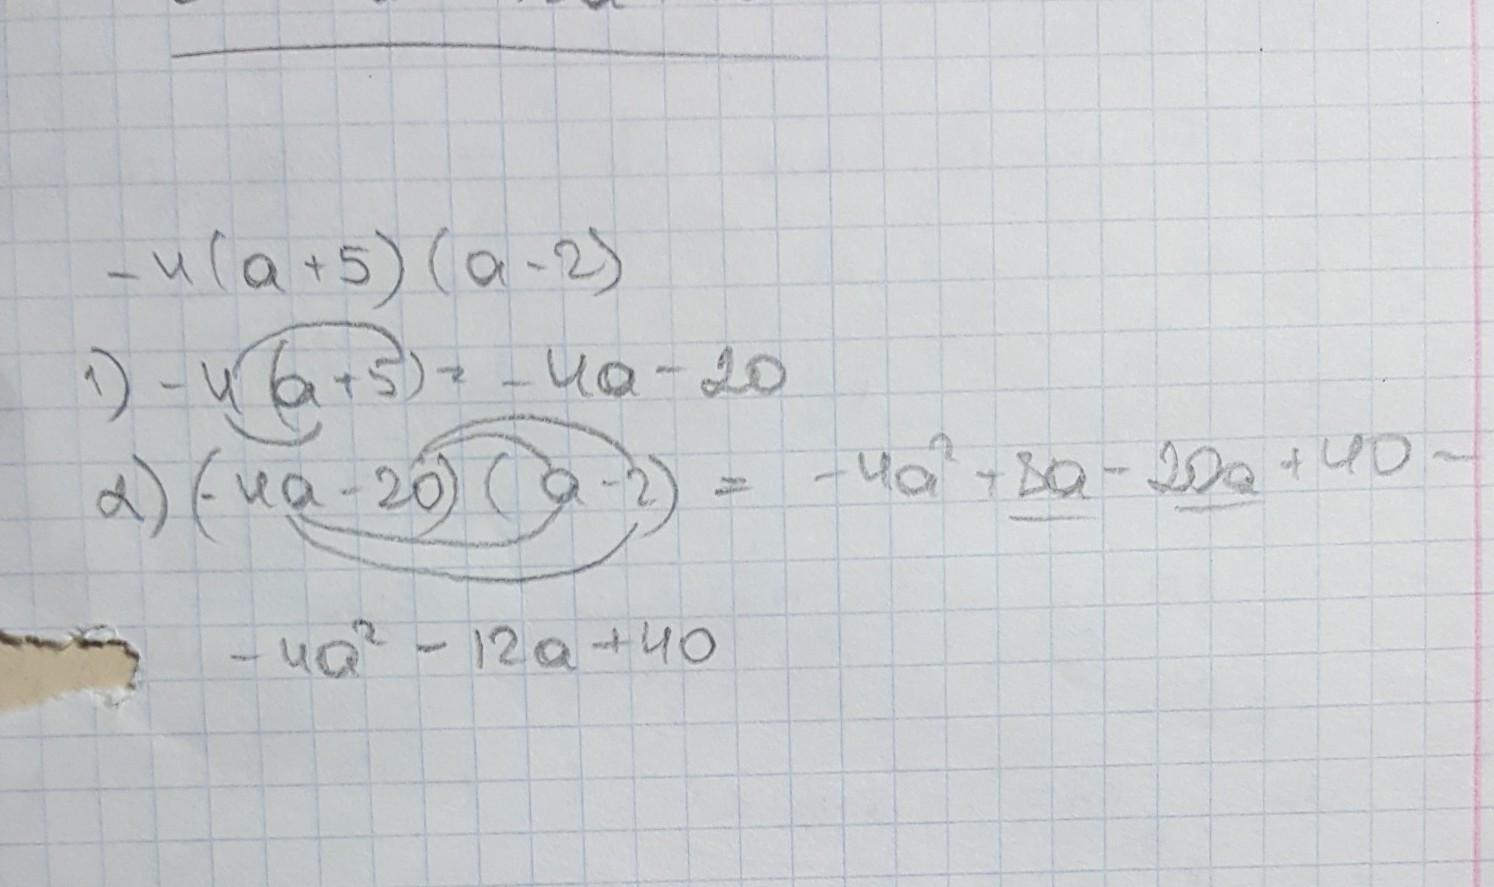 -4(a+5)(a-2)
1) -4(a+5)= -4a-20
2) (-4a-20)(a-2) = -4a²+8a-20a+40=
-4a²-12a+40